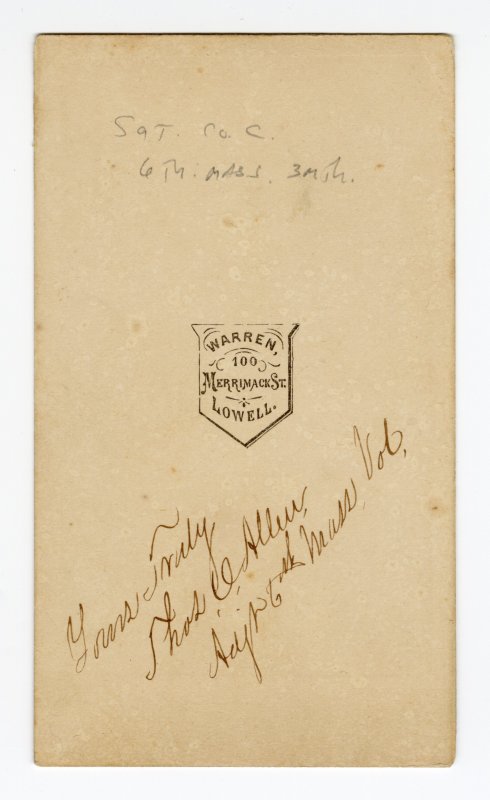 Sgt. Co. C.
6th. MASS. 3mth.
WARREN,
100
MERRIMACK ST.
LOWELL.
Yours Truly
Thos. O. Allen,
Adjt 6th Mass Vol,